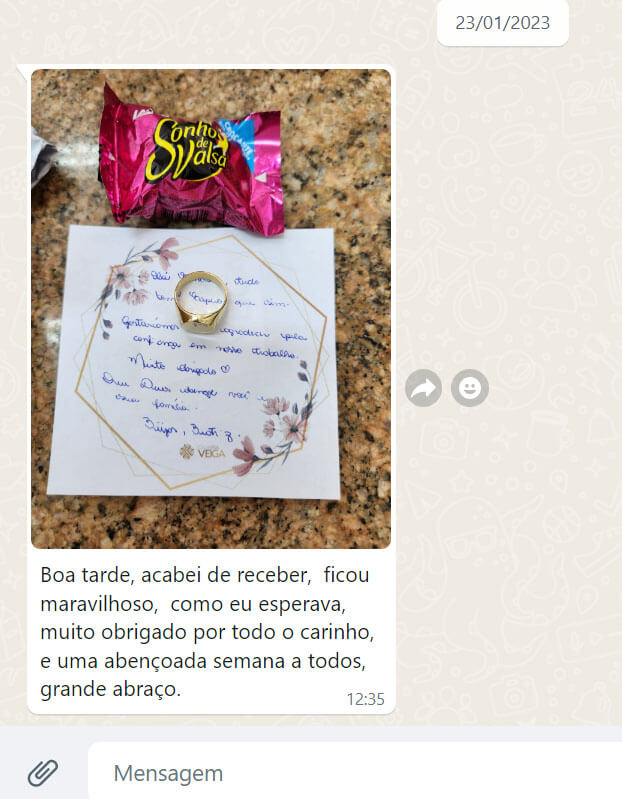 23/01/2023
Sonho
de
Valsa
CROCANTE
tudo
bem? que sim.
Gostaríamos agradecer pela
confiança em nosso trabalho.
Muito obrigado ♡
Que Deus você e
sua família.
Beijos,
VEIGA
Boa tarde, acabei de receber,  ficou
maravilhoso,  como eu esperava,
muito obrigado por todo o carinho,
e uma abençoada semana a todos,
grande abraço.
12:35
Mensagem